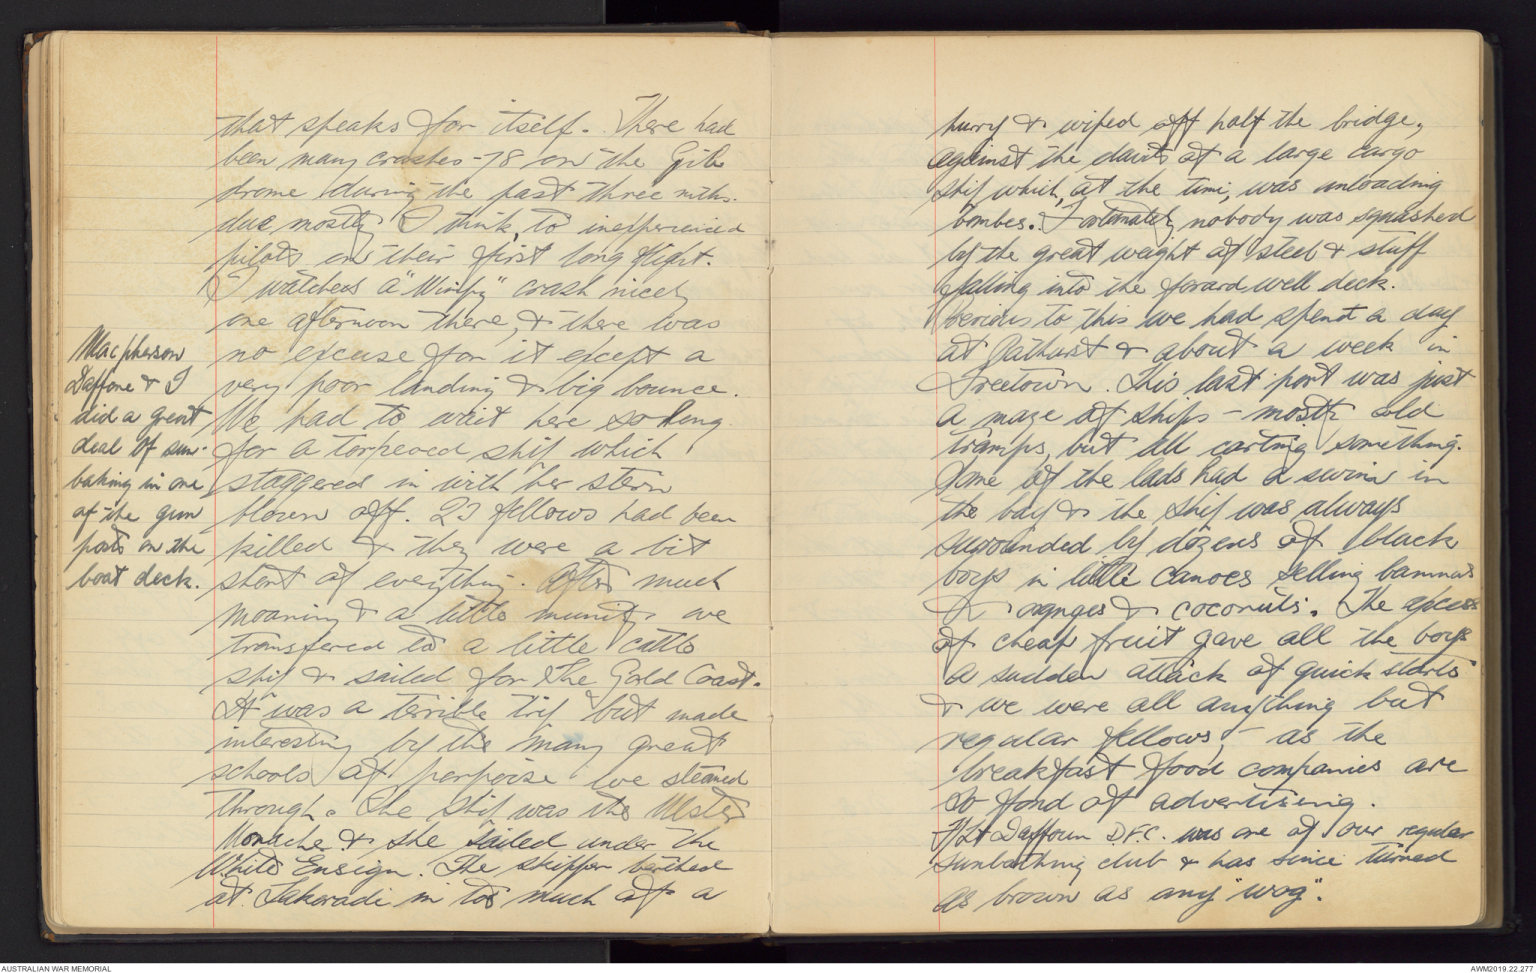 that speaks for itself. There had
been many crashes - 78 on the Gib
drome during the past three mths.
due, mostly I think, to inexperienced
pilots on their first long flight.
I watched a "Wimpy" crash nicely
one afternoon there, & there was
no excuse for it except a
very poor landing & big bounce.
We had to wait here so long
for a torpeoed ship which
staggered in with her stern
blown off. 23 fellows had been
killed & they were a bit
short of everything. After much
moaning & a little munity we
transfered to a little cattle
ship & sailed for the Gold Coast.
It was a terrible trip but made
interesting by the many great
schools of porpoise we steamed
through. The ship was the Ulster
Monache & she sailed under the
White Ensign. The skipper berthed
at Takoradi in too much of a
Macpherson
Daffone & I
did a great
deal of sun-
baking in one
of the gun
posts on the
boat deck.
hurry & wiped off half the bridge,
against the davits of a large cargo
ship which, at the time, was unloading
bombes. Fortunately nobody was squashed
by the great weight of steel & stuff
falling into the forard well deck.
besides to this we had spent a day
at Bathurst & about a week in
Freetown. This last port was just
a maze of ships - mostly old
tramps, but all carting something.
Some of the lads had a swim in
the bay & the ship was always
surrounded by dozens of black
boys in little canoes selling bananas
& oranges & coconuts. The
of cheap fruit gave all the boys
a sudden attack of quick starts
& we were all anything but
regular fellows, - as the
breakfast food companies are
so fond of advertising.
F/Lt Daffoun D.F.C. was one of our regular
sunbathing club & has since turned
as brown as any "wog".
AUSTRALIAN WAR MEMORIAL
AWM2019.22.277